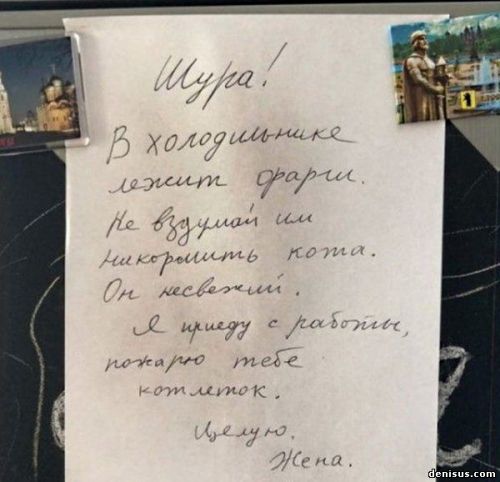 Шура!
В холодильнике
лежит фарш.
Не вздумай им
накормить кота.
Он несвежий.
Я приеду с работы,
пожарю тебе
котлеток.
Целую.
Жена.
denisus.com